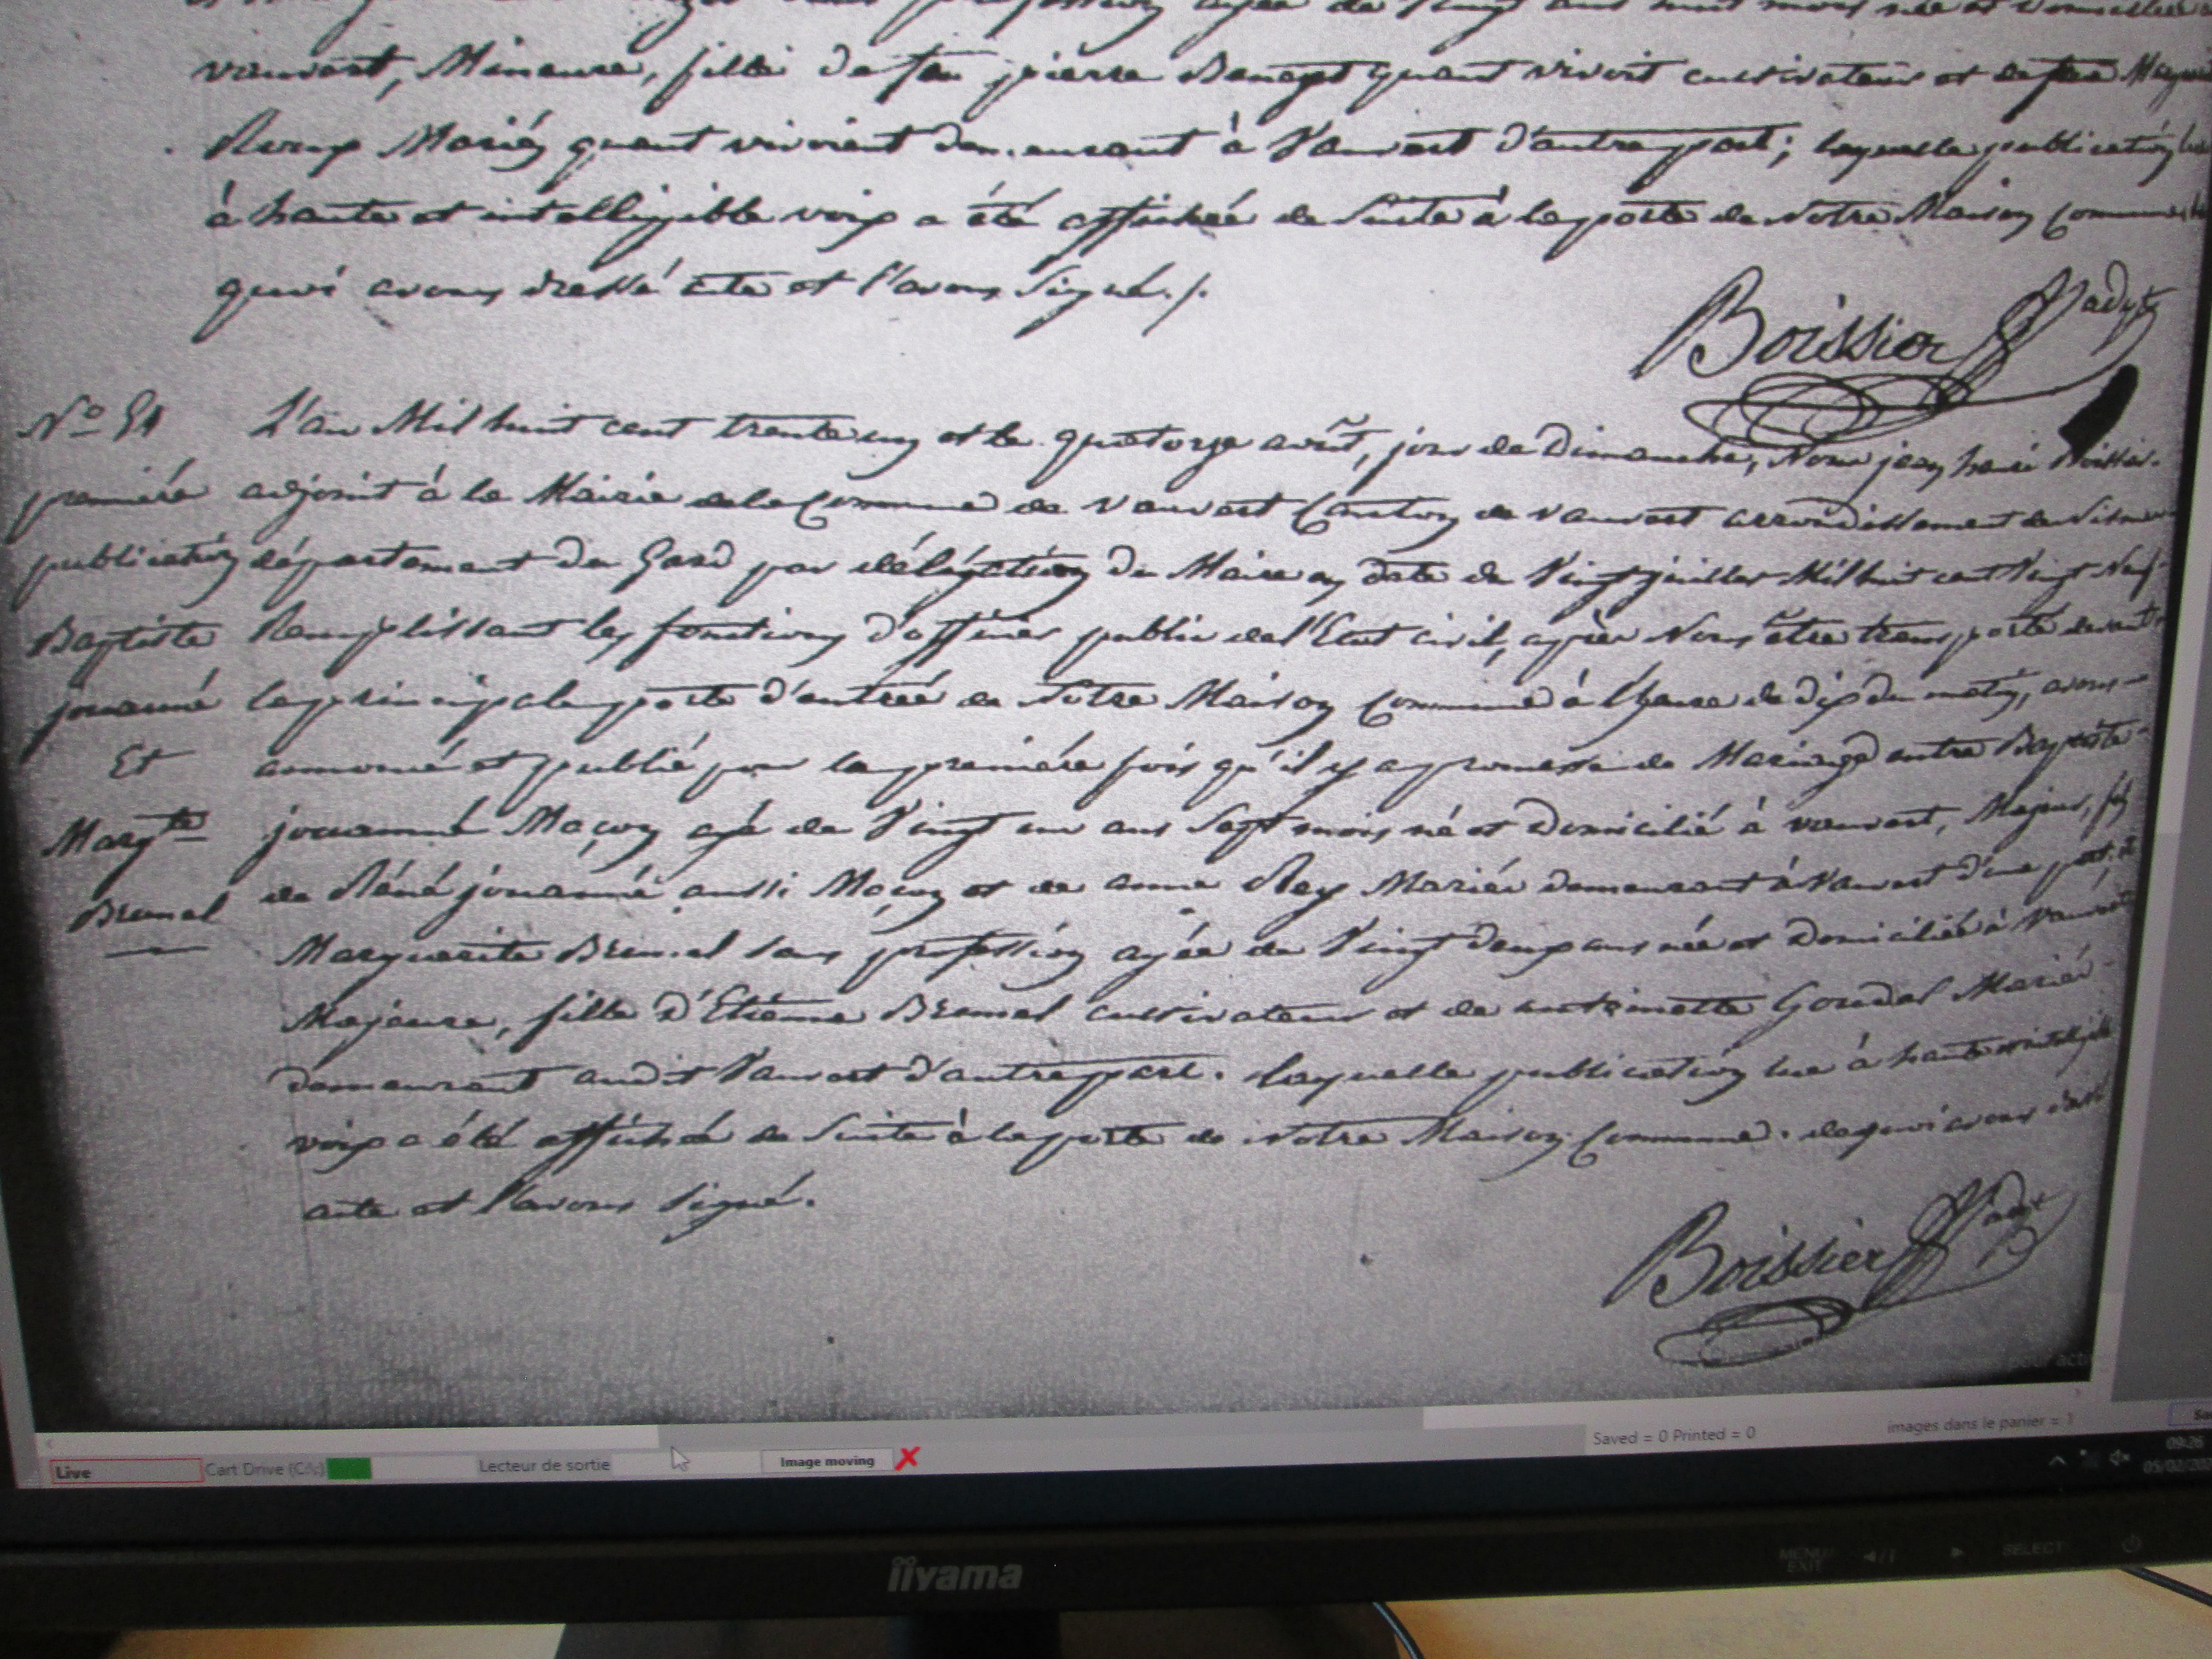 vauvert, Mineure, fille de feu pierre Benezet quant vivoit cultivateur et de feue
Mariés quant vivoient demeurant à Vauvert d'autre part; laquelle publication
à haute et intelligible voix a été affichée de Suite à la porte de Notre Maison Commune
quoi avons dressé acte et l'avons Signé./.
Boissier adjt
N° 51
première
publication
Baptiste
jouanné
Et
Margte
Brunel
L'an Mil huit cent trente un et le quatorze août, jour de Dimanche, Nous jean henri Boissier
adjoint à la Mairie de la Commune de Vauvert Canton de Vauvert arrondissement de Nismes
département du Gard par délégation du Maire en date du Vingt juillet Mil huit cent Vingt Neuf
Remplissant les fonctions d'officier public de l'Etat civil, après Nous être transporté devant
la principale porte d'entrée de Notre Maison Commune à l'heure de dix du matin, avons
annoncé et publié pour la première fois qu'il y a promesse de Mariage entre Baptiste
jouanné Maçon agé de Vingt un ans Sept mois né et Domicilié à vauvert, Majeur, fils
de Réné jouanné aussi Maçon et de anne Rey Mariés demeurant à Vauvert d'une part; et
Marguerite Brunel sans profession agée de Vingt deux ans née et Domiciliée à Vauvert
Majeure, fille d'Etienne Brunel cultivateur et de antoinette Goudal Mariés
demeurant audit Vauvert d'autre part. laquelle publication lue à haute et intelligible
voix a été affichée de Suite à la porte de Notre Maison Commune. de quoi avons dressé
acte et l'avons Signé.
Boissier adjt
Live
Cart Drive (C:\c)
Lecteur de sortie
Image moving
Saved = 0 Printed = 0
images dans le panier = 1
09:26
iiyama
MENU/
EXIT
SELECT